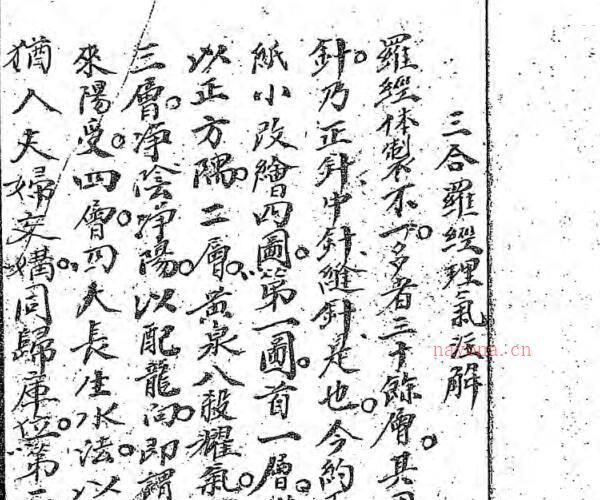 三合羅經理氣 解
羅經体製不一。多者三十餘層。其
針。乃正針中針縫針是也。今約
紙小改繪四圖。第一圖。首一層。
以正方隅。二層。黃泉八殺耀氣。
三層。凈陰凈陽。以配龍向。即謂
來陽受。四層。四大長生水法。以
猶人夫婦交媾。同歸庫位。第
nayona.cn